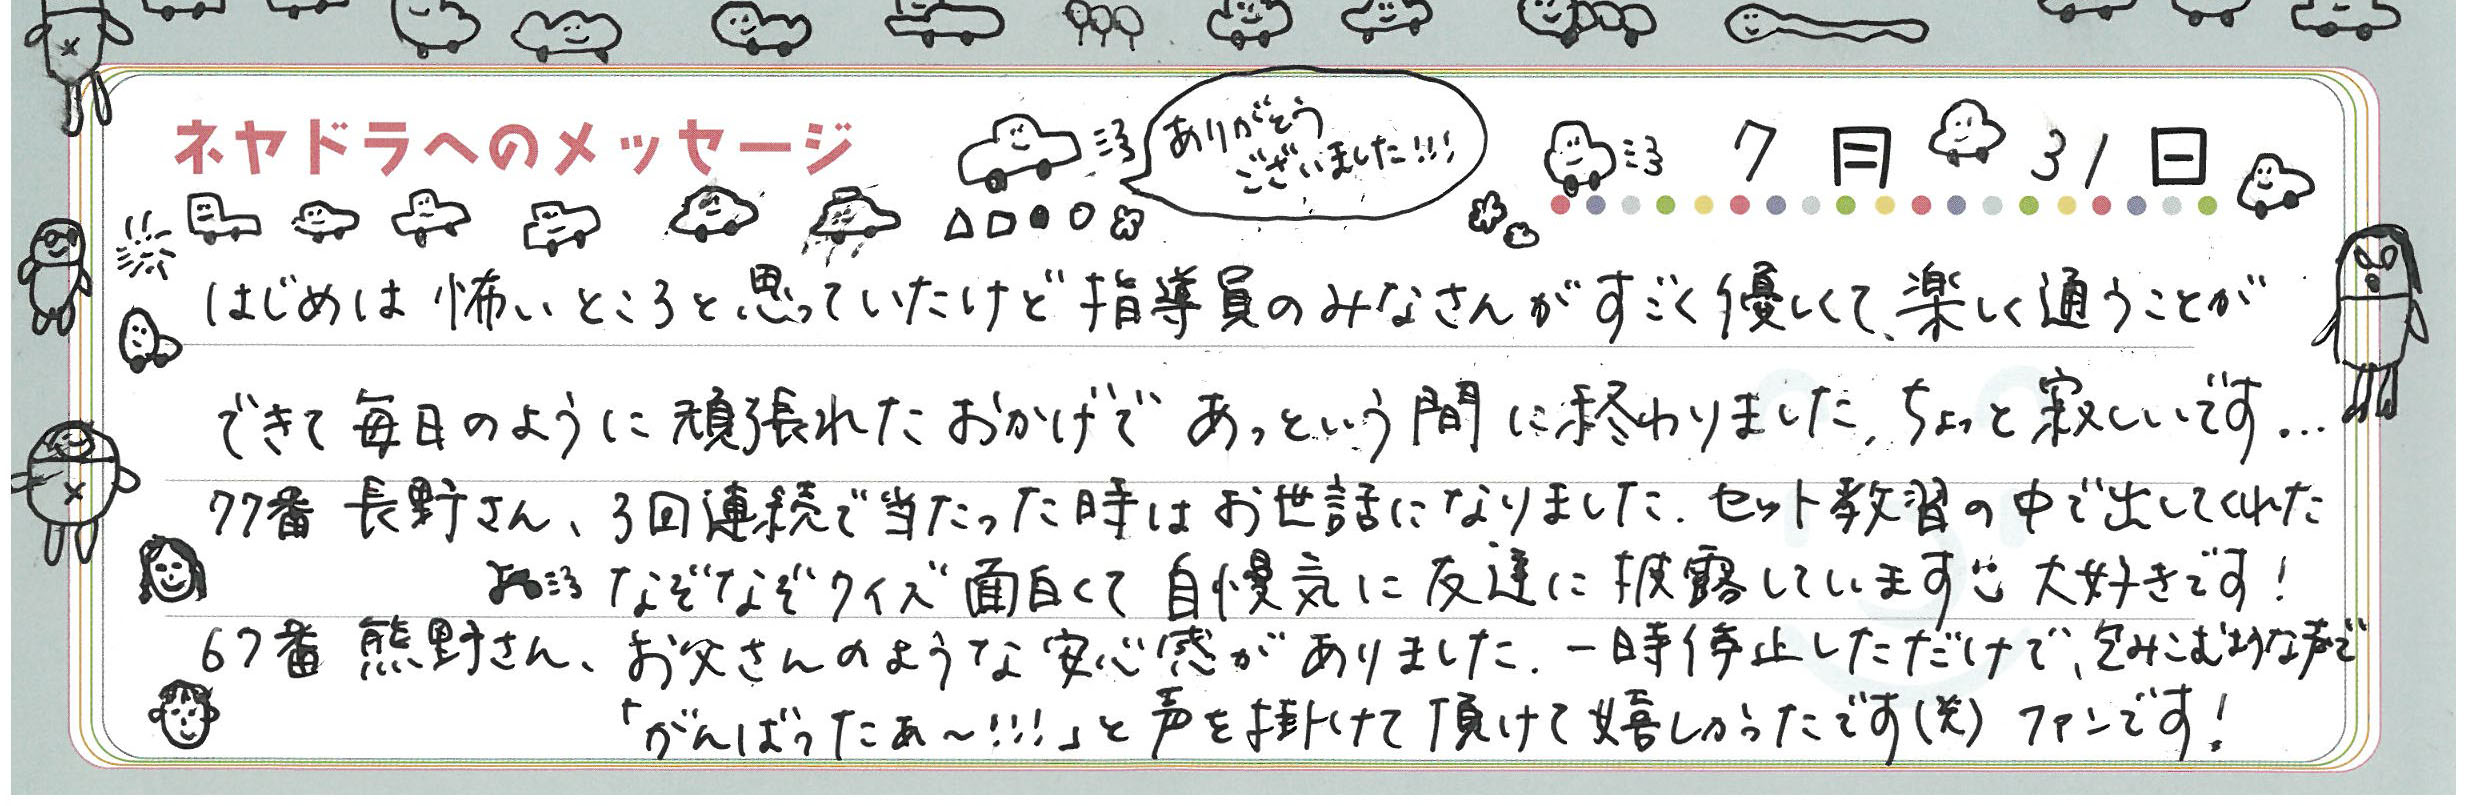 ネヤドラへのメッセージ
ありがとう
ございました!!!
7月31日
はじめは怖いところと思っていたけど指導員のみなさんがすごく優しくて、楽しく通うことが
できて毎日のように頑張れたおかげであっという間に終わりました。ちょっと寂しいです...
77番 長野さん、3回連続で当たった時はお世話になりました。セット教習の中で出してくれた
なぞなぞクイズ面白くて自慢気に友達に披露しています 大好きです!
67番 熊野さん、お父さんのような安心感がありました。一時停止しただけで、包みこむような声で
「がんばったぁ〜!!!」と声を掛けて頂けて嬉しかったです(笑) ファンです!